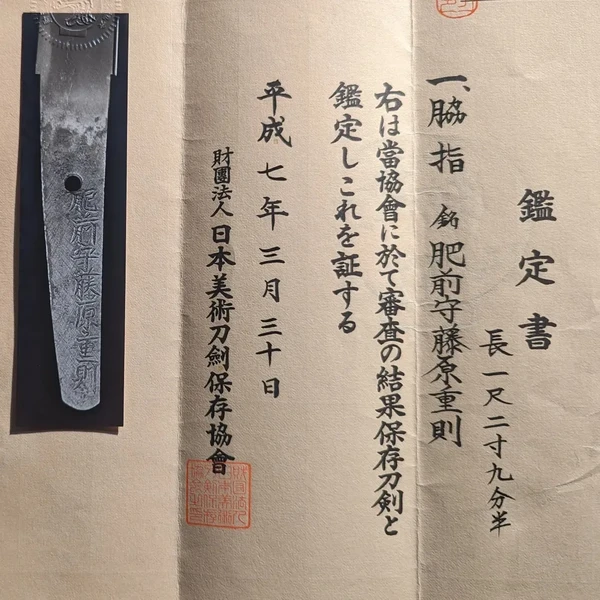 鑑定書
一、脇指 銘 肥前守藤原重則
長一尺二寸九分半
右は當協會に於て審査の結果保存刀剣と
鑑定しこれを証する
平成七年三月三十日
財團法人日本美術刀劍保存協會
肥前守藤原重則